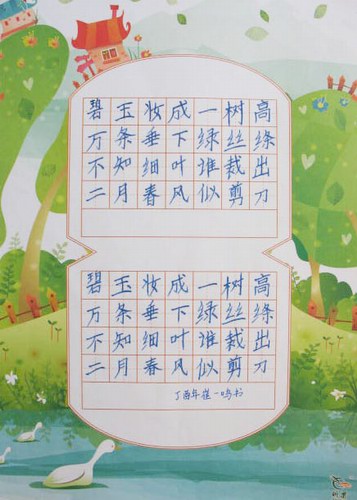 碧玉妆成一树高
万条垂下绿丝绦
不知细叶谁裁出
二月春风似剪刀
碧玉妆成一树高
万条垂下绿丝绦
不知细叶谁裁出
二月春风似剪刀
丁酉年崔一鸣书